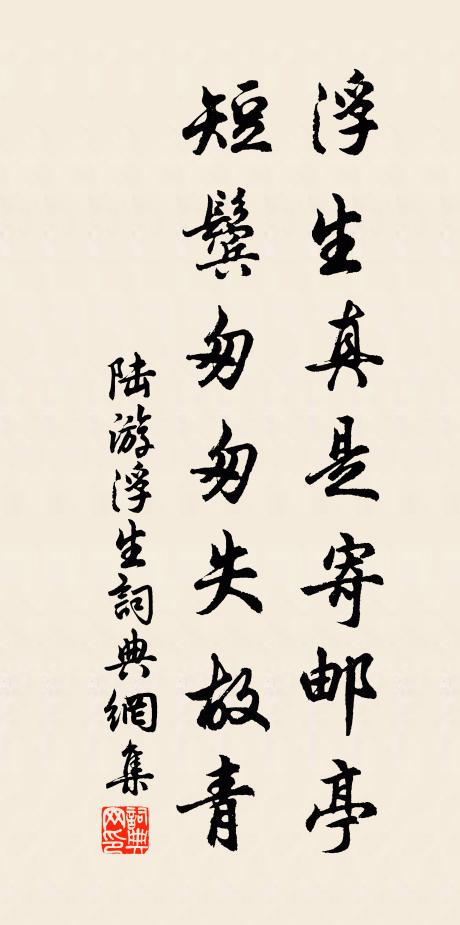 浮生真是寄邮亭
短鬓匆匆失故青
陆游浮生詞典網集
詞典網印